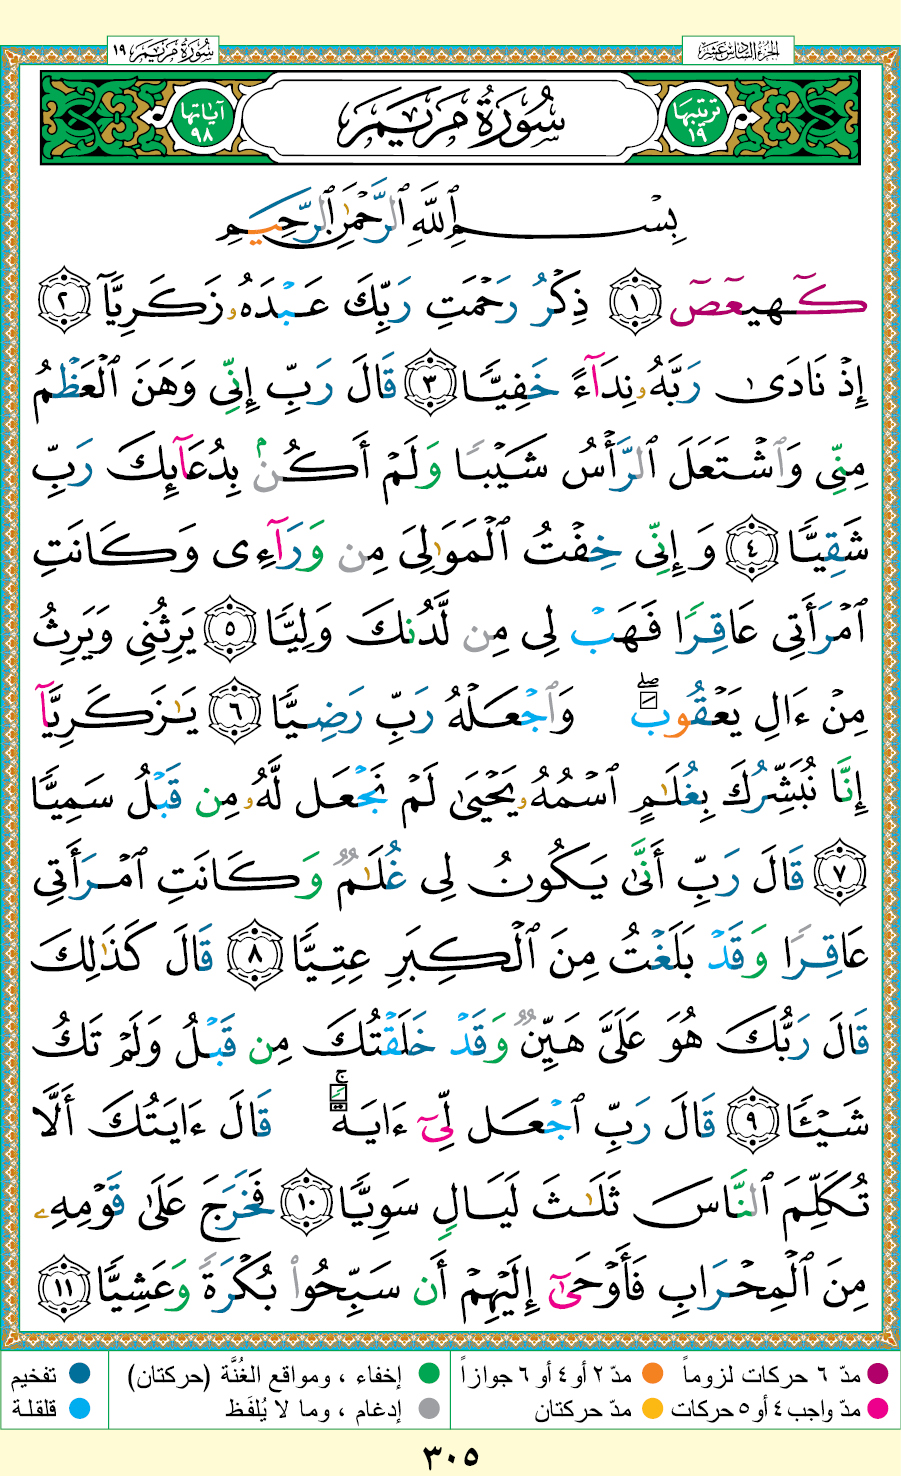 سُورَةُ مَرْيَمَ ١٩
الجزء السادس عشر
ترتيبها ١٩
سُورَةُ مَرْيَمَ
آياتها ٩٨
بِسْمِ ٱللَّهِ ٱلرَّحْمَٰنِ ٱلرَّحِيمِ
كٓهيعٓصٓ ١ ذِكْرُ رَحْمَتِ رَبِّكَ عَبْدَهُۥ زَكَرِيَّآ ٢
إِذْ نَادَىٰ رَبَّهُۥ نِدَآءً خَفِيًّا ٣ قَالَ رَبِّ إِنِّى وَهَنَ ٱلْعَظْمُ
مِنِّى وَٱشْتَعَلَ ٱلرَّأْسُ شَيْبًا وَلَمْ أَكُنۢ بِدُعَآئِكَ رَبِّ
شَقِيًّا ٤ وَإِنِّى خِفْتُ ٱلْمَوَٰلِىَ مِن وَرَآءِى وَكَانَتِ
ٱمْرَأَتِى عَاقِرًا فَهَبْ لِى مِن لَّدُنكَ وَلِيًّا ٥ يَرِثُنِى وَيَرِثُ
مِنْ ءَالِ يَعْقُوبَ ۖ وَٱجْعَلْهُ رَبِّ رَضِيًّا ٦ يَٰزَكَرِيَّآ
إِنَّا نُبَشِّرُكَ بِغُلَٰمٍ ٱسْمُهُۥ يَحْيَىٰ لَمْ نَجْعَل لَّهُۥ مِن قَبْلُ سَمِيًّا
٧ قَالَ رَبِّ أَنَّىٰ يَكُونُ لِى غُلَٰمٌ وَكَانَتِ ٱمْرَأَتِى
عَاقِرًا وَقَدْ بَلَغْتُ مِنَ ٱلْكِبَرِ عِتِيًّا ٨ قَالَ كَذَٰلِكَ
قَالَ رَبُّكَ هُوَ عَلَىَّ هَيِّنٌ وَقَدْ خَلَقْتُكَ مِن قَبْلُ وَلَمْ تَكُ
شَيْـًٔا ٩ قَالَ رَبِّ ٱجْعَل لِّىٓ ءَايَةً ۚ قَالَ ءَايَتُكَ أَلَّا
تُكَلِّمَ ٱلنَّاسَ ثَلَٰثَ لَيَالٍ سَوِيًّا ١٠ فَخَرَجَ عَلَىٰ قَوْمِهِۦ
مِنَ ٱلْمِحْرَابِ فَأَوْحَىٰٓ إِلَيْهِمْ أَن سَبِّحُوا۟ بُكْرَةً وَعَشِيًّا ١١
مدّ ٦ حركات لزوماً
مدّ ٢ أو ٤ أو ٦ جوازاً
إخفاء ، ومواقع الغُنَّة (حركتان)
تفخيم
مدّ واجب ٤ أو ٥ حركات
مدّ حركتان
إدغام ، وما لا يُلفَظ
قلقلة
٣٠٥